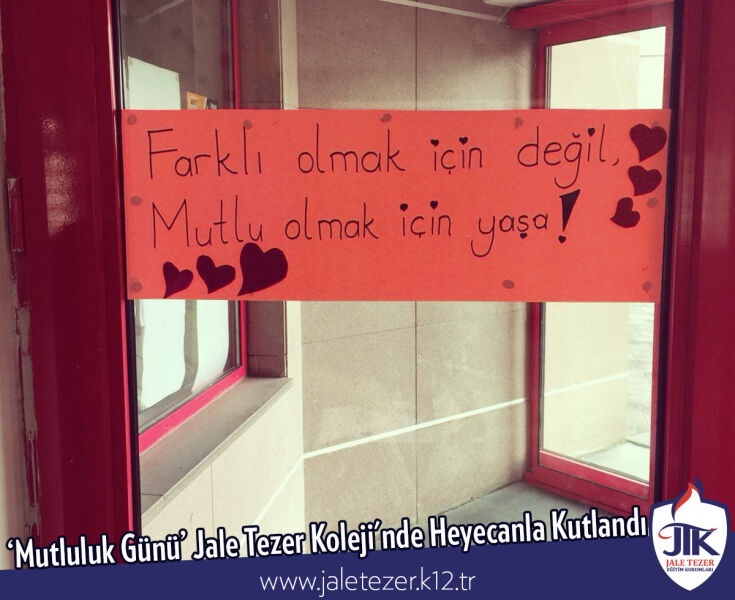 Farklı olmak için değil,
Mutlu olmak için yaşa!
‘Mutluluk Günü’ Jale Tezer Koleji’nde Heyecanla Kutlandı
JTK
JALE TEZER
EĞİTİM KURUMLARI
www.jaletezer.k12.tr